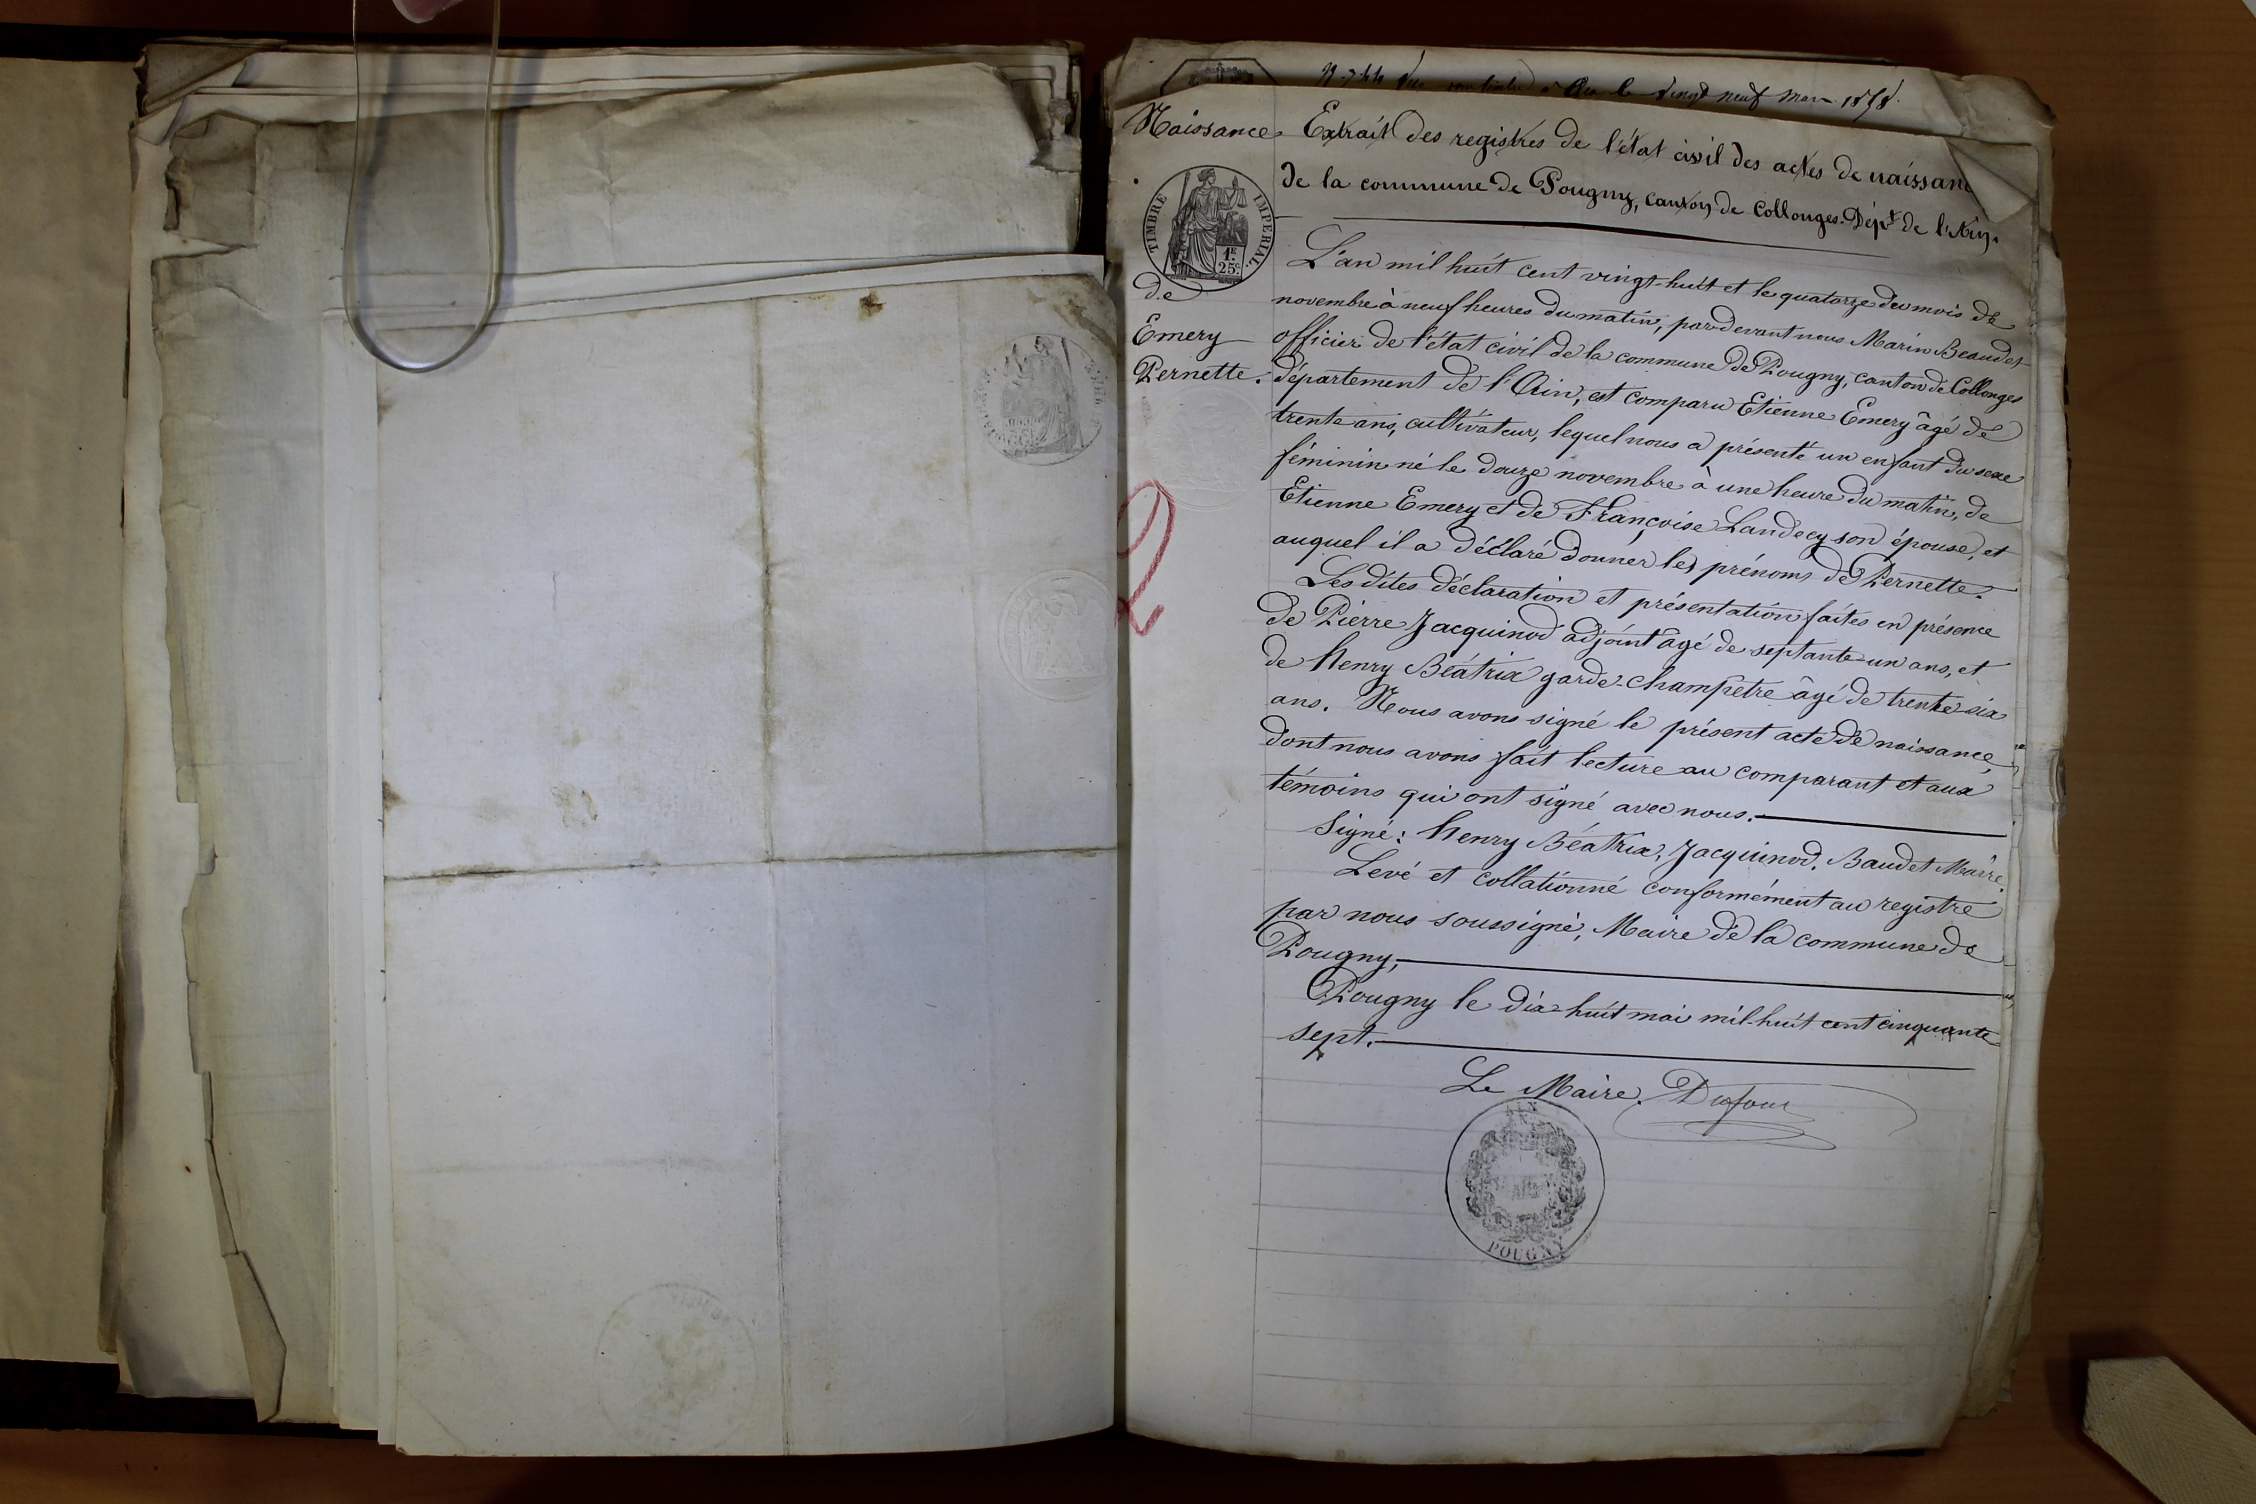 vingt neuf mars 1858.
Naissance
TIMBRE IMPERIAL
1F
25c
de
Emery
Pernette.
Extrait des registres de l'état civil des actes de naissan
de la commune de Pougny, canton de Collonges. Dépt de l'Ain.
L'an mil huit cent vingt-huit et le quatorze du mois de
novembre à neuf heures du matin, pardevant nous Marin Beaudet
officier de l'état civil de la commune de Pougny, canton de Collonges
département de l'Ain, est comparu Etienne Emery âgé de
trente ans, cultivateur, lequel nous a présenté un enfant du sexe
féminin né le douze novembre à une heure du matin, de
Etienne Emery et de Françoise Landecy son épouse, et
auquel il a déclaré donner les prénoms de Pernette.
Les dites déclaration et présentation faites en présence
de Pierre Jacquinod adjoint agé de septante-un ans, et
de henry Béatrix garde-champetre âgé de trente-six
ans. Nous avons signé le présent acte de naissance,
dont nous avons fait lecture au comparant et aux
témoins qui ont signé avec nous.
Signé: henry Béatrix, Jacquinod. Baudet Maire.
Levé et collationné conformément au registre
par nous soussigné, Maire de la commune de
Pougny,
Pougny le dix-huit mai mil-huit cent cinquante
sept.
Le Maire. Dufour
AIN
POUGNY
2